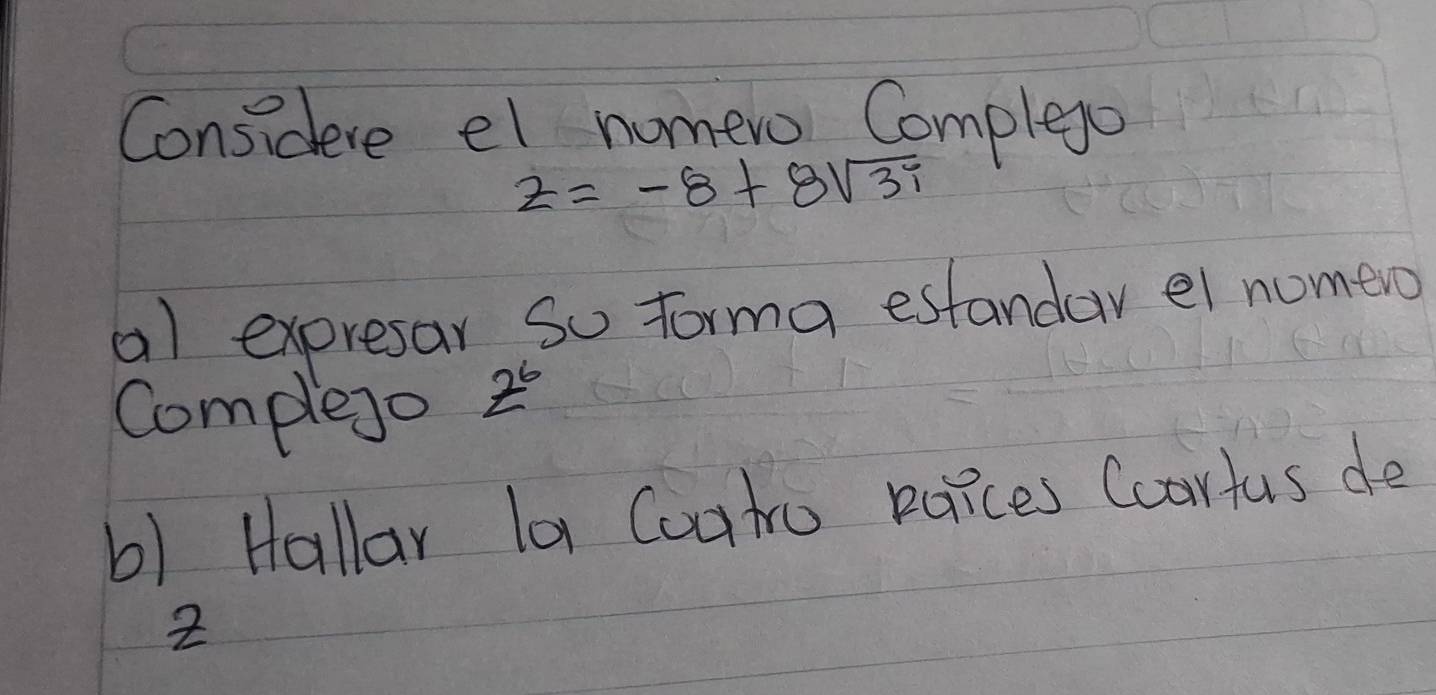 Considere el numero Complejo
z = -8 + 8√3i
a) expresar su forma estandar el numero
Complejo z⁶
b) Hallar la Cuatro raices Cuartas de
z